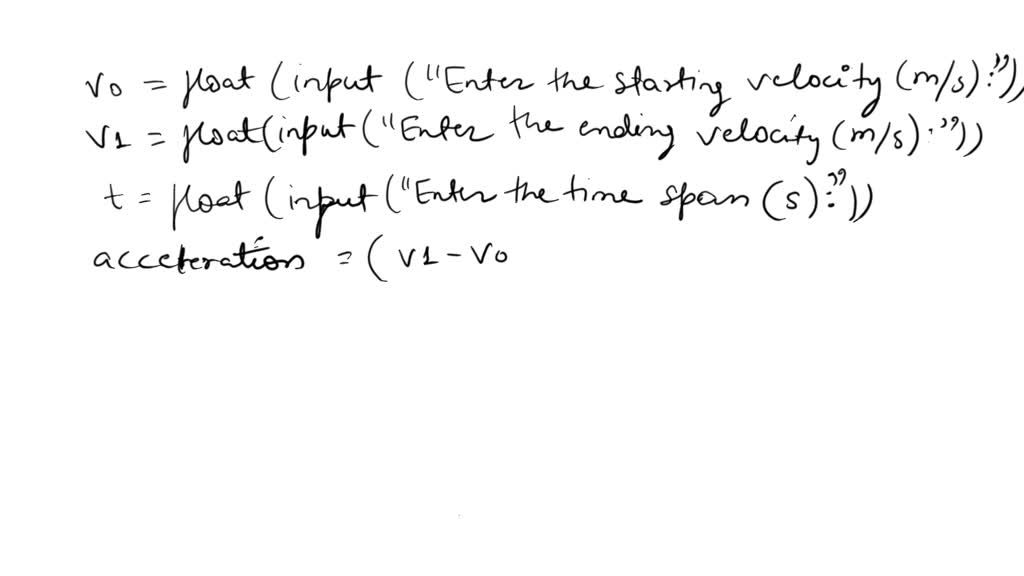 v0 = float (input ("Enter the starting velocity (m/s):"))
v1 = float(input("Enter the ending velocity (m/s):"))
t = float (input("Enter the time span (s):"))
acceleration = (v1-v0